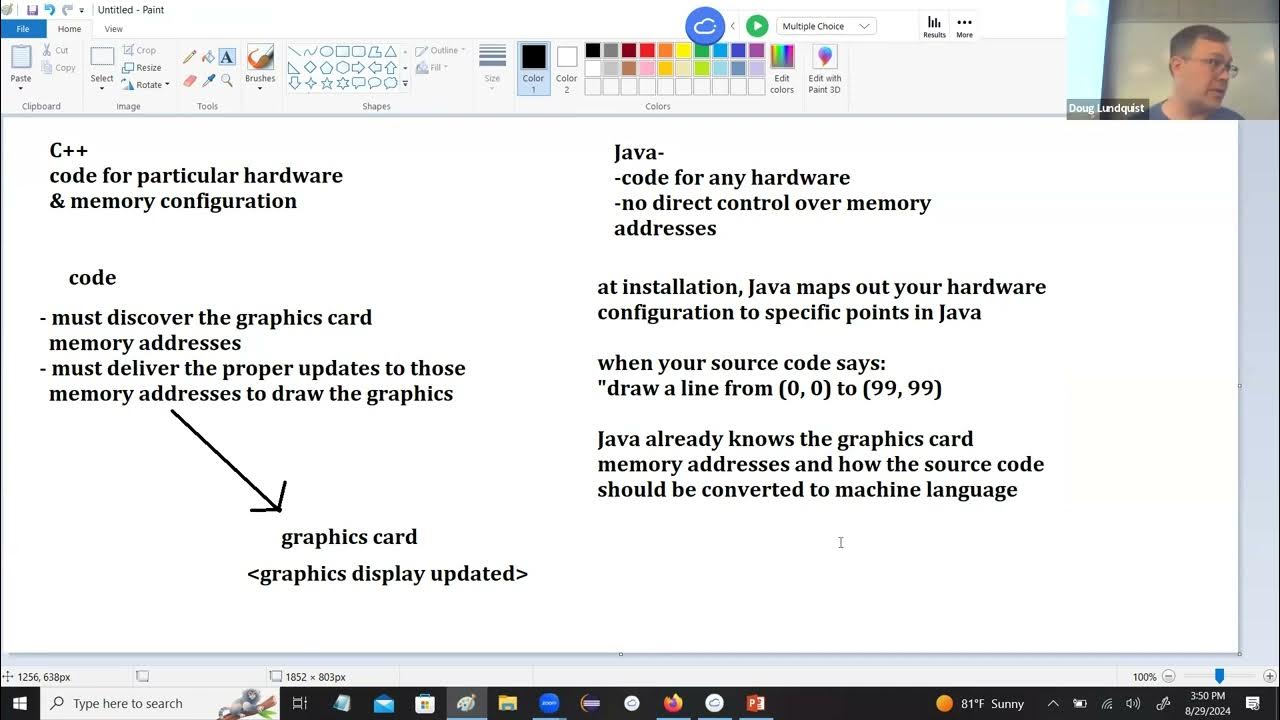 Untitled - Paint
File
Home
View
Paste
Cut
Copy
Clipboard
Select
Crop
Resize
Rotate
Image
A
Tools
Brushes
Shapes
Outline
Fill
Size
Color
1
Color
2
Edit
colors
Colors
Edit with
Paint 3D
Multiple Choice
Results
More
Doug Lundquist
C++
code for particular hardware
& memory configuration
code
- must discover the graphics card
memory addresses
- must deliver the proper updates to those
memory addresses to draw the graphics
graphics card
<graphics display updated>
Java-
-code for any hardware
-no direct control over memory
addresses
at installation, Java maps out your hardware
configuration to specific points in Java
when your source code says:
"draw a line from (0, 0) to (99, 99)
Java already knows the graphics card
memory addresses and how the source code
should be converted to machine language
1256, 638px
1852 × 803px
100%
Type here to search
zoom
81°F Sunny
3:50 PM
8/29/2024